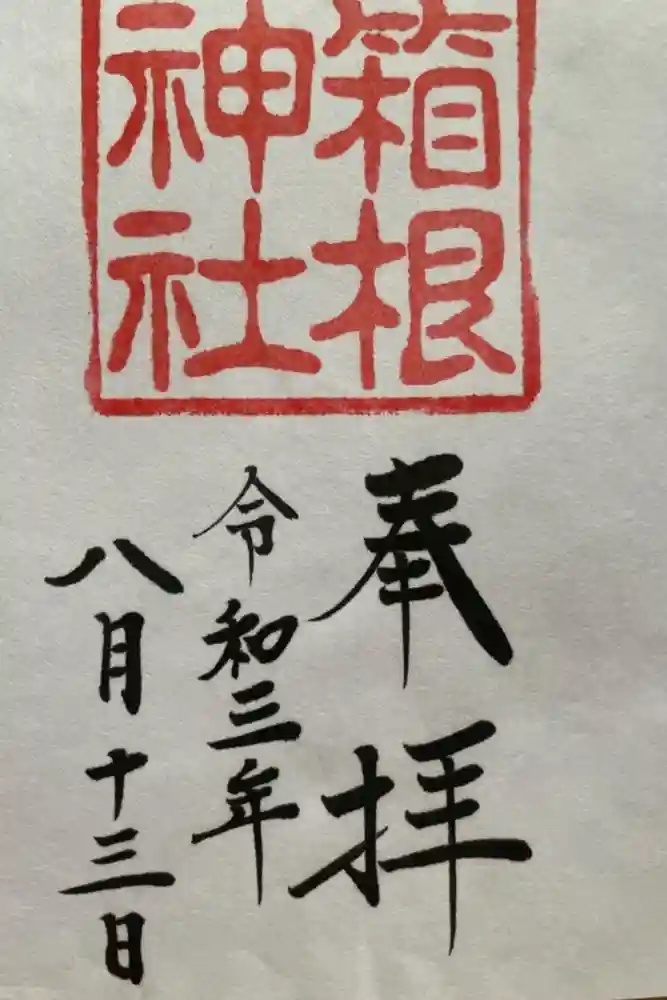 箱根
神社
奉拝
令和三年
八月十三日